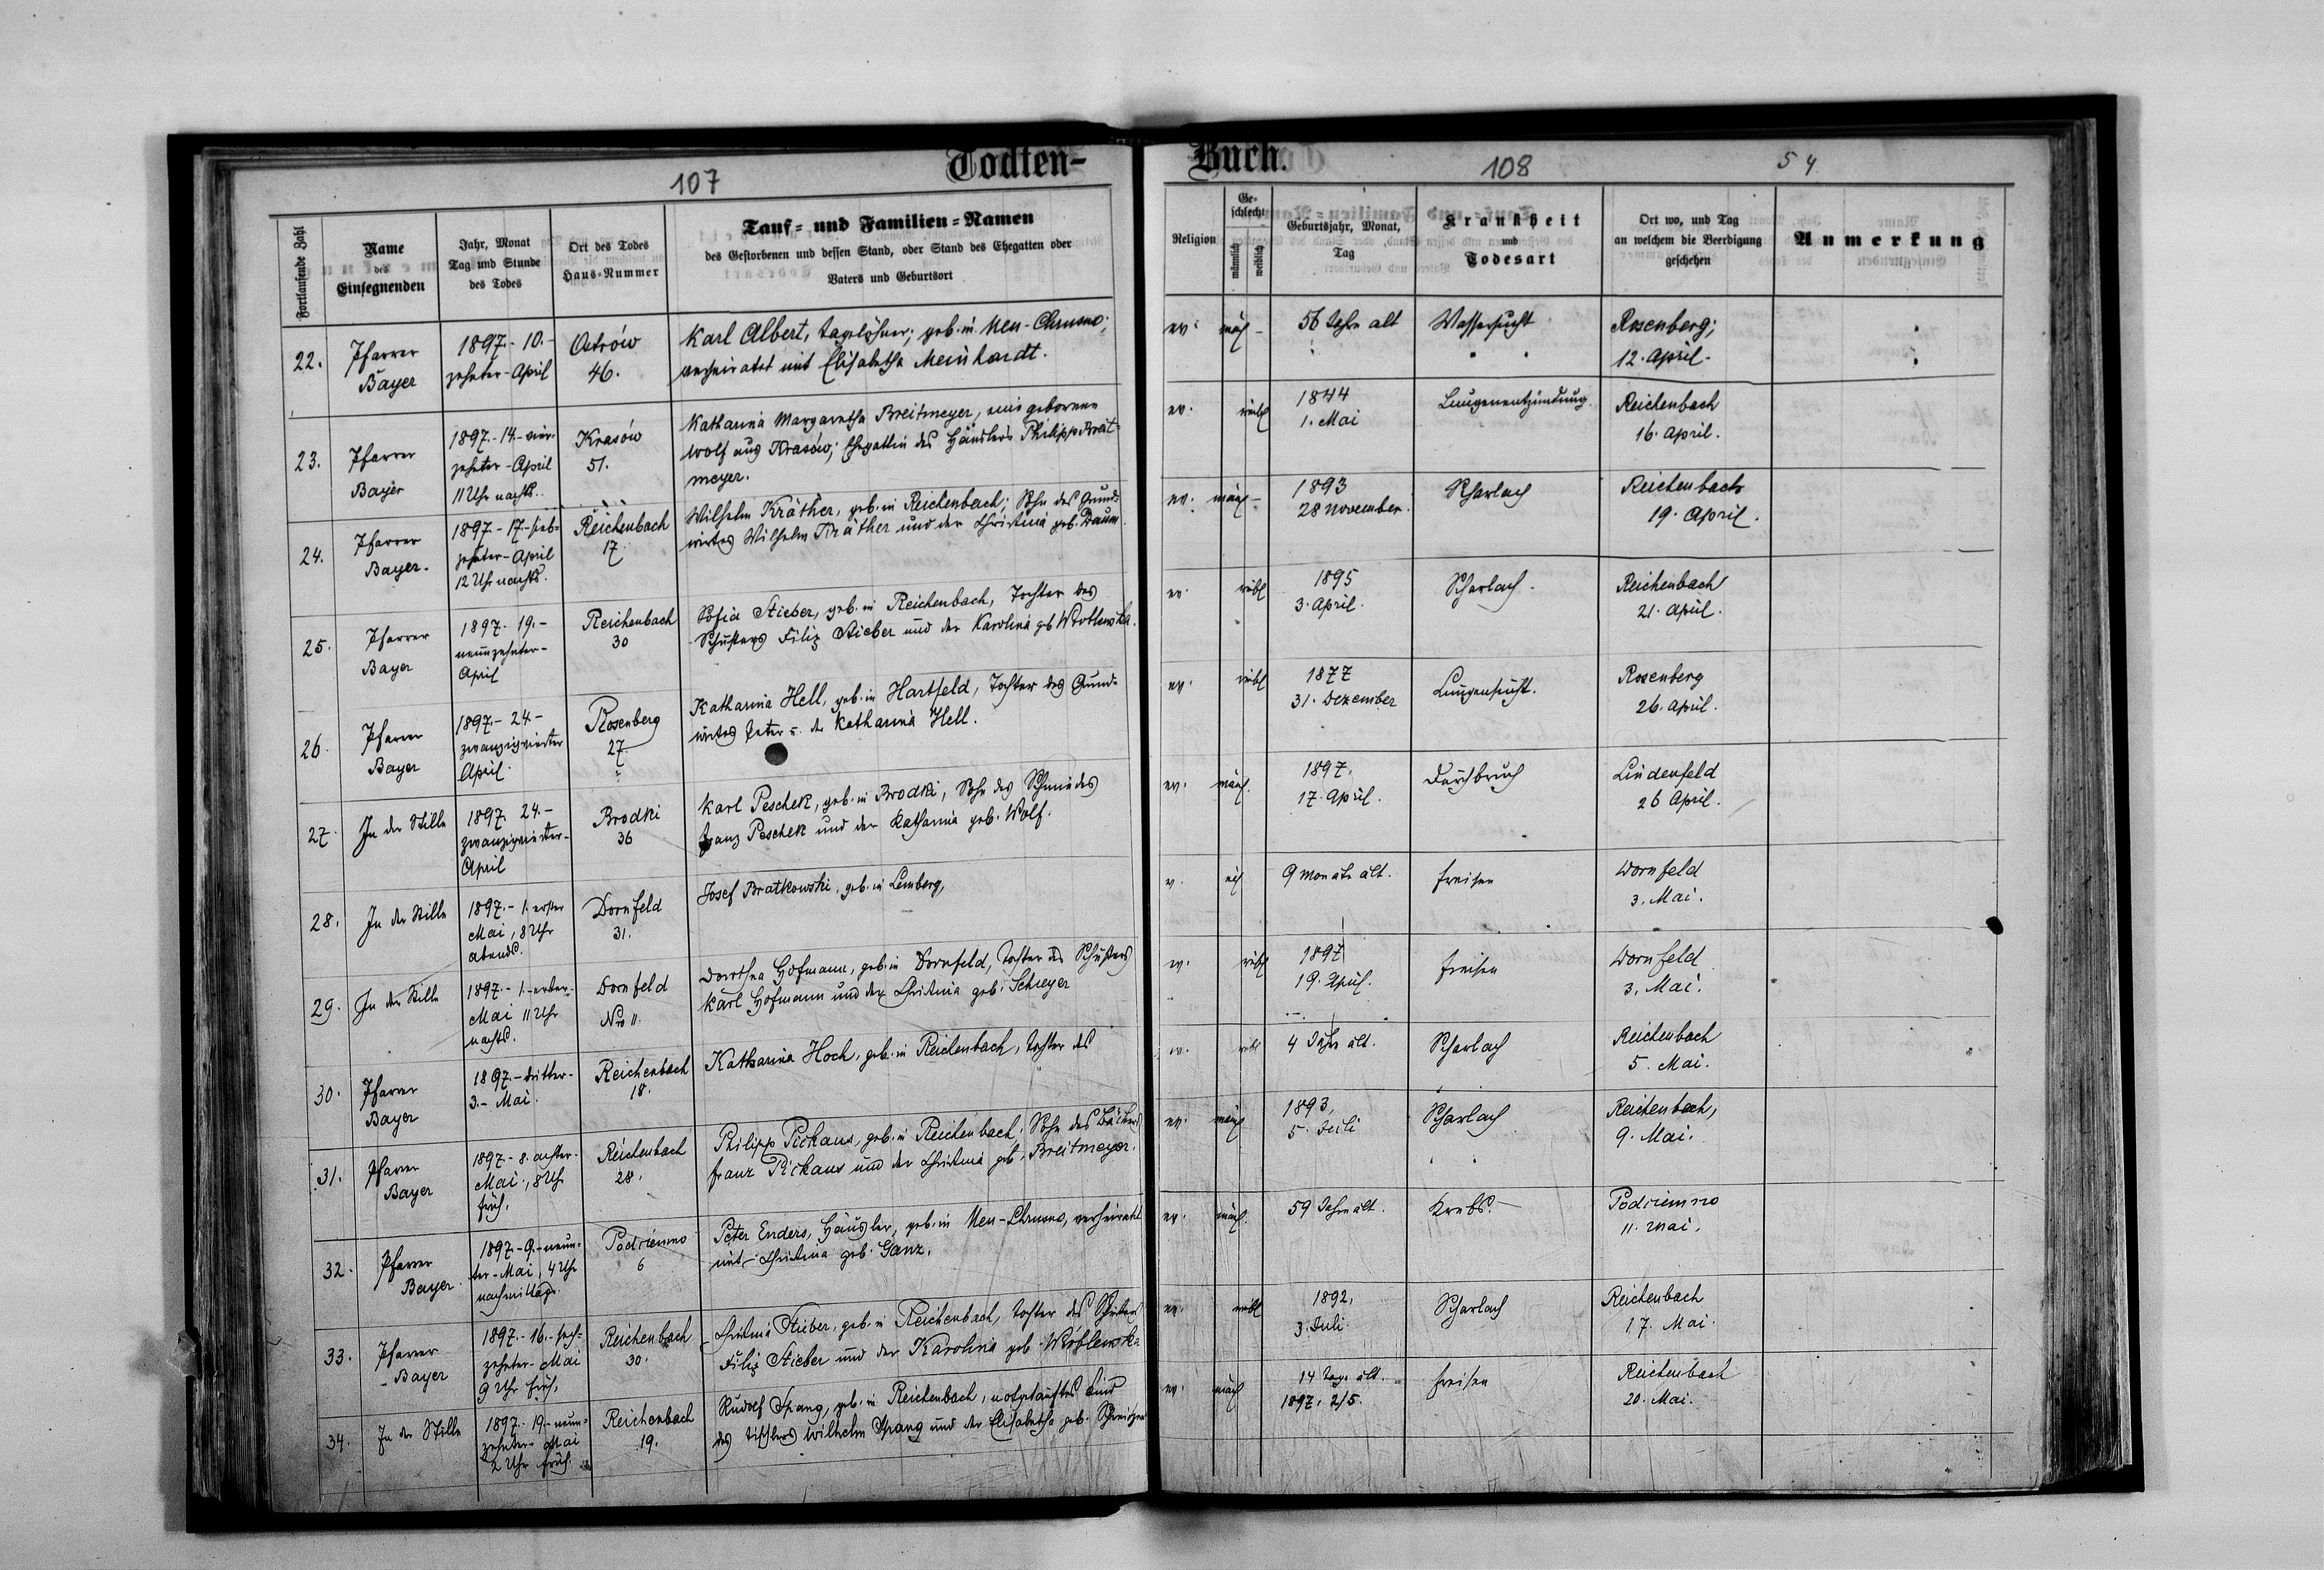 Todten-
107
Fortlaufende Zahl
Name
des
Einsegnenden
Jahr, Monat
Tag und Stunde
des Todes
Ort des Todes
Haus-Nummer
Tauf- und Familien-Namen
des Gestorbenen und dessen Stand, oder Stand des Ehegatten oder
Vaters und Geburtsort
22.
Pfarrer
Bayer
1897.- 10.-
zehnter-April
Ostrów
46.
Karl Albert, Taglöhner; geb. in Neu-Chrusno;
verheiratet mit Elisabetha Meinhardt.
23.
Pfarrer
Bayer
1897.- 14.- vier-
zehnter-April
11 Uhr nachts.
Krasów
51.
Katharina Margaretha Breitmeyer, eine geborene
Wolf aus Krasów; Ehegattin des Händlers Philipp Breit-
meyer.
24.
Pfarrer
Bayer.
1897.- 17.- sieb-
zehnter-April
12 Uhr nachts.
Reichenbach
17
Wilhelm Kräther, geb. in Reichenbach; Sohn des Grund-
wirtes Wilhelm Kräther und der Christina geb. Daum
25.
Pfarrer
Bayer
1897. 19.-
neunzehnter-
April
Reichenbach
30
Sofia Stieber, geb. in Reichenbach, Tochter des
Schusters Filip Stieber und der Karolina geb Wróblewska.
26.
Pfarrer
Bayer
1897.- 24.-
zwanzigvierter
April.
Rosenberg
27.
Katharina Hell, geb. in Hartfeld, Tochter des Grund-
wirtes Peter u. der Katharina Hell.
27.
In der Stille
1897. 24.-
zwanzigvierter-
April
Brodki
36
Karl Peschek, geb. in Brodki, Sohn des Schmiedes
Franz Peschek und der Katharina geb. Wolf.
28.
In der Stille
1897.- 1. erster
Mai, 8 Uhr
abends.
Dornfeld
31.
Josef Bratkowski, geb. in Lemberg,
29.
In der Stille
1897.- 1.-erster-
Mai 11 Uhr
nachts.
Dornfeld
Nro 11.
Dorothea Hofmann, geb. in Dornfeld, Tochter des Schusters
Karl Hofmann und der Christina geb. Schreyer
30.
Pfarrer
Bayer
1897.- dritter-
3.- Mai.
Reichenbach
18.
Katharina Hoch, geb. in Reichenbach, Tochter des
31.
Pfarrer
Bayer
1897.- 8. achter-
Mai, 8 Uhr
früh.
Reichenbach
28.
Philipp Pickaus, geb. in Reichenbach, Sohn des
Franz Pickaus und der Christina geb. Breitmeyer.
32.
Pfarrer
Bayer.
1897.- 9.-neun-
ter-Mai, 4 Uhr
nachmittags.
6
Peter Enders, Häusler, geb. in Neu-Chrusno, verheiratet
mit Christina geb. Ganz.
33.
Pfarrer
Bayer
1897.- 16.-sech-
zehnter-Mai
9 Uhr früh.
Reichenbach
30.
Christina Stieber, geb. in Reichenbach, Tochter des Schusters
Filip Stieber und der Karolina geb. Wróblewska
34.
In der Stille
1897.- 19.-neun-
zehnter-Mai
2 Uhr früh.
Reichenbach
19.
Rudolf Spang, geb. in Reichenbach, notgetauftes Kind
des Tischlers Wilhelm Spang und der Elisabetha geb.
Buch.
108
54
Religion
Ge-
schlecht
männlich
weiblich
Geburtsjahr, Monat,
Tag
Krankheit
und
Todesart
Ort wo, und Tag
an welchem die Beerdigung
geschehen
Anmerkung
ev. mäñl
56 Jahre alt
Wassersucht
Rosenberg;
12. April.
ev. weibl
1844
1. Mai
Lungenentzündung.
Reichenbach
16. April.
ev. mäñl
1893
28 November.
Scharlach
Reichenbach
19. April.
ev. weibl
1895
3. April.
Scharlach.
Reichenbach
21. April.
ev. weibl
1877
31. Dezember
Lungensucht.
Rosenberg
26. April.
ev. mäñl.
1897.
17. April.
Durchbruch
Lindenfeld
26 April.
9 Monate alt.
Freisen
Dornfeld
3. Mai.
ev. weibl
1897
19. April.
Freisen
Dornfeld
3. Mai.
ev. weibl
4 Jahre alt.
Scharlach
Reichenbach
5. Mai.
ev. mäñl
1893,
5. Juli
Scharlach
Reichenbach,
9. Mai.
ev. mäñl.
59 Jahre alt.
Krebs.
11. Mai.
ev. weibl
1892,
3. Juli.
Scharlach
Reichenbach
17. Mai.
ev. mäñl
14 Tage alt.
1897. 2/5.
Freisen
Reichenbach
20. Mai.